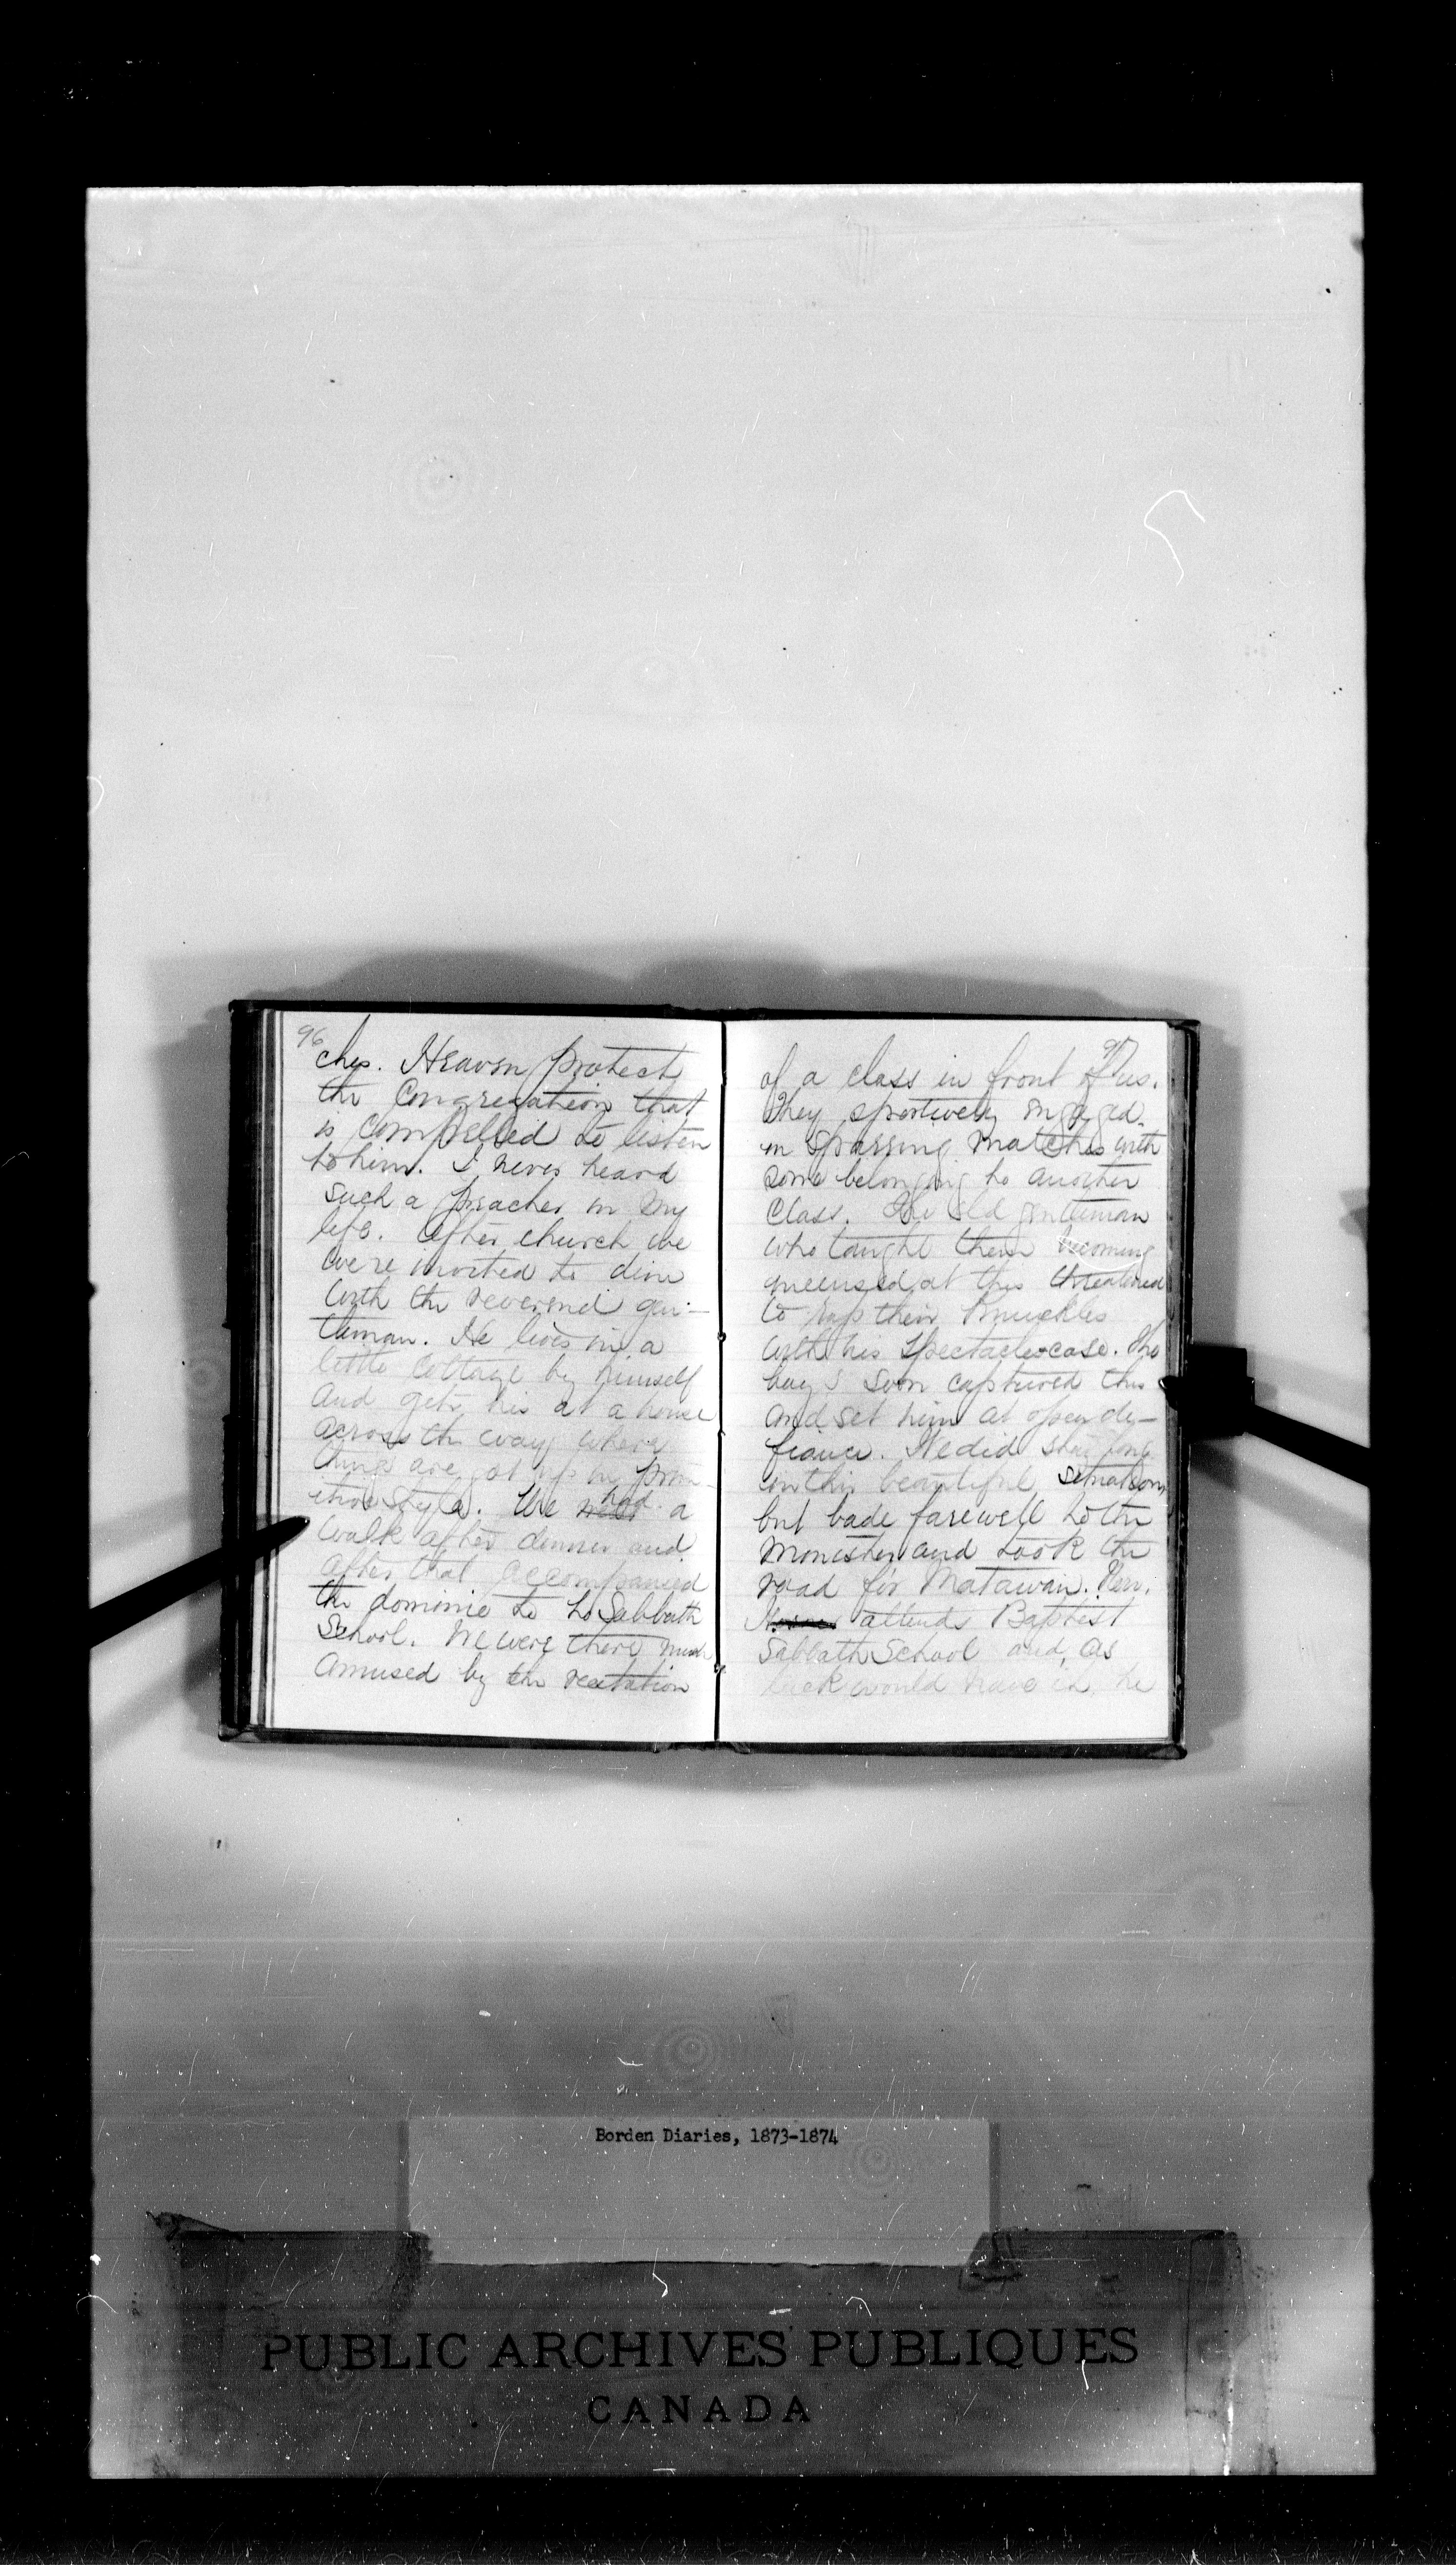 96
ches. Heaven protect
the Congregation that
is compelled to listen
to him. I never heard
such a preacher in my
life. After church we
were invited to dine
with the reverend gen-
tleman. He lives in a
little cottage by himself
and gets his at a house
across the way where
things are got up in prim-
itive style. We had a
walk after dinner and
after that accompanied
the dominie to to Sabbath
School. We were there much
amused by the recitation
97
of a class in front of us.
They sportively engaged
in sparring matches with
some belonging to another
class. The old gentleman
who taught them becoming
incensed at this threatened
to rap their knuckles
with his spectacle-case. The
boys soon captured this
and set him at open de-
fiance. We did stay long
in this beautiful situation
but bade farewell to the
Monister and took the
road for Matawan.
attends Baptist
Sabbath School and, as
luck would have it, he
Borden Diaries, 1873-1874
PUBLIC ARCHIVES PUBLIQUES
CANADA